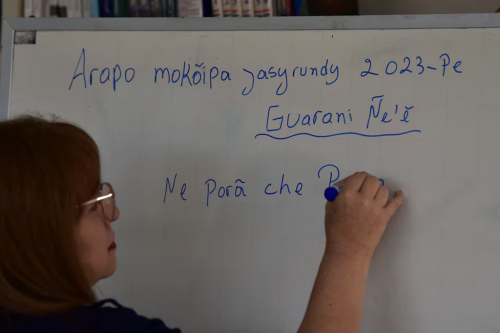 Arapo mokõipa jasyrundy 2023-Pe
Guarani Ñe'ẽ
Ne Porã che